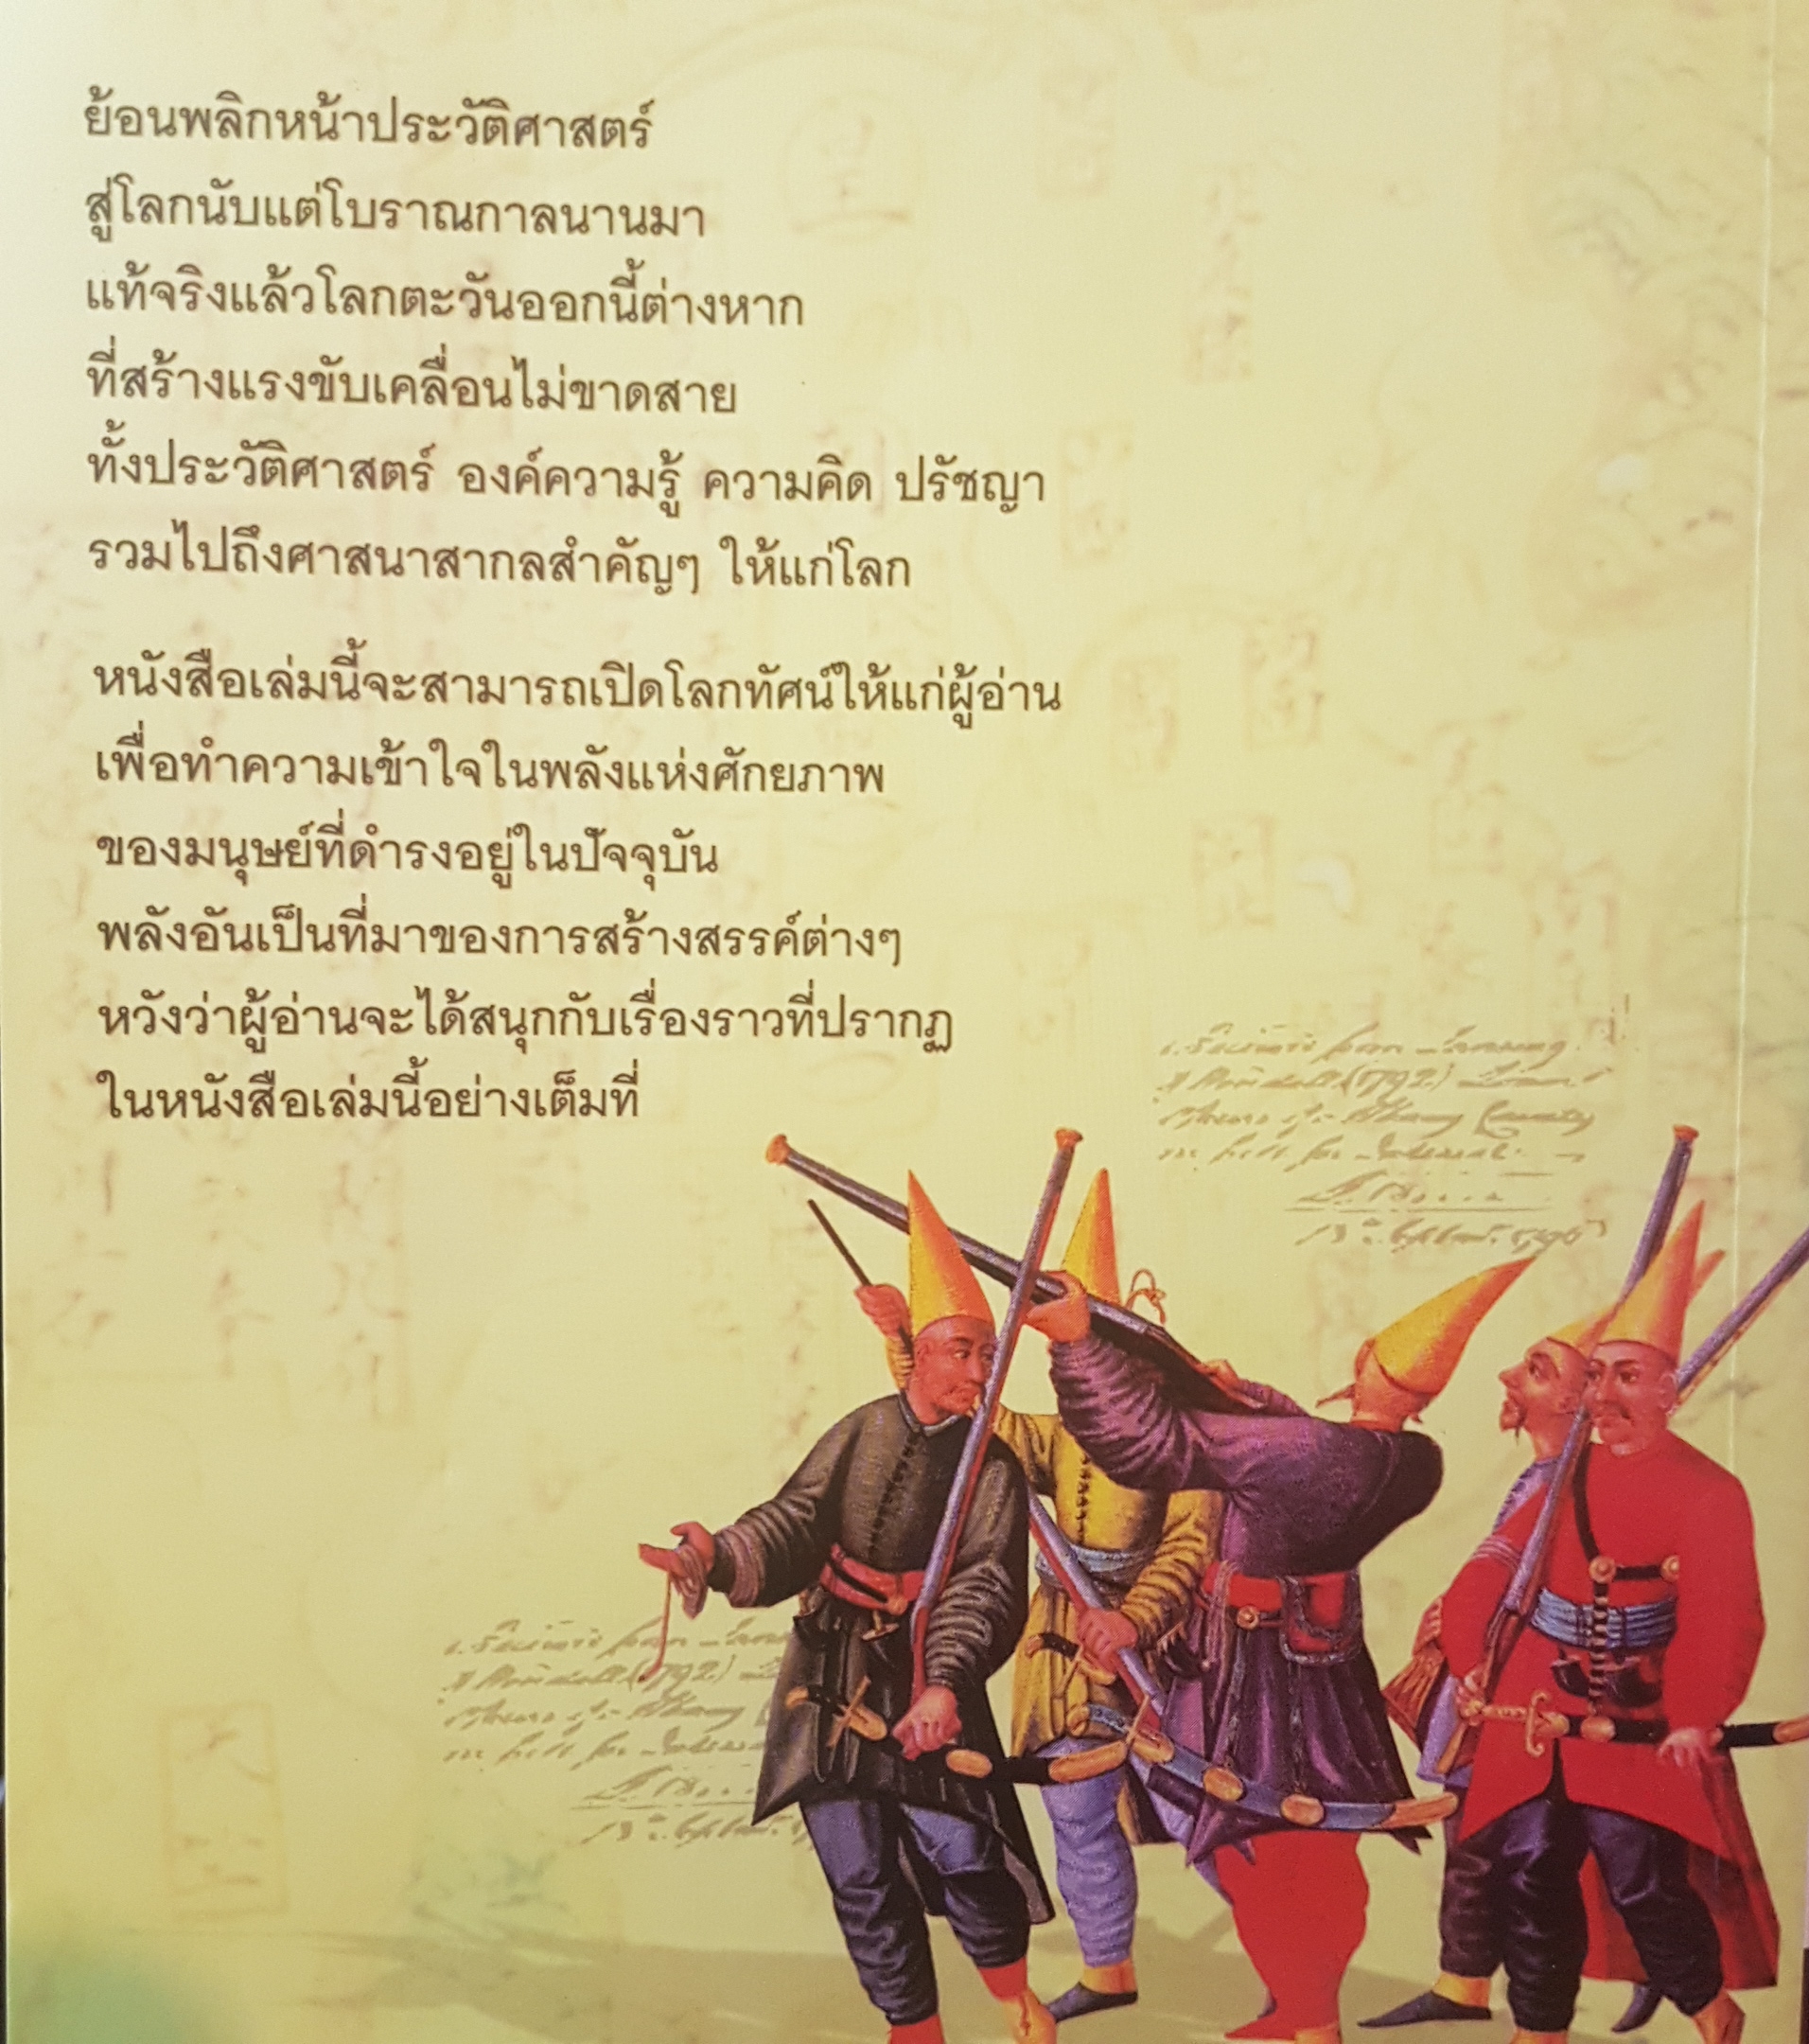 ย้อนพลิกหน้าประวัติศาสตร์
สู่โลกนับแต่โบราณกาลนานมา
แท้จริงแล้วโลกตะวันออกนี้ต่างหาก
ที่สร้างแรงขับเคลื่อนไม่ขาดสาย
ทั้งประวัติศาสตร์ องค์ความรู้ ความคิด ปรัชญา
รวมไปถึงศาสนาสากลสำคัญๆ ให้แก่โลก
หนังสือเล่มนี้จะสามารถเปิดโลกทัศน์ให้แก่ผู้อ่าน
เพื่อทำความเข้าใจในพลังแห่งศักยภาพ
ของมนุษย์ที่ดำรงอยู่ในปัจจุบัน
พลังอันเป็นที่มาของการสร้างสรรค์ต่างๆ
หวังว่าผู้อ่านจะได้สนุกกับเรื่องราวที่ปรากฏ
ในหนังสือเล่มนี้อย่างเต็มที่
(1792.)